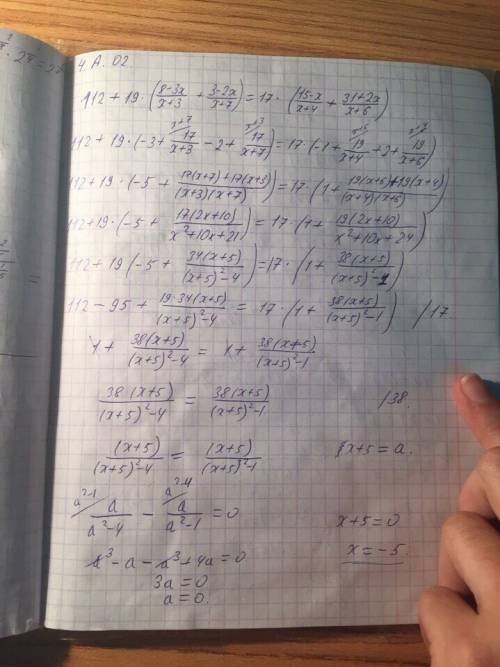 4.A.02
112 + 19 · ( (8-3x)/(x+3) + (3-2x)/(x+7) ) = 17 · ( (15-x)/(x+4) + (31+2x)/(x+6) )
112 + 19 · ( -3 + 17/(x+3) - 2 + 17/(x+7) ) = 17 · ( -1 + 19/(x+4) + 2 + 19/(x+6) )
112 + 19 · ( -5 + (17(x+7)+17(x+3))/((x+3)(x+7)) ) = 17 · ( 1 + (19(x+6)+19(x+4))/((x+4)(x+6)) )
112 + 19 · ( -5 + 17(2x+10)/(x²+10x+21) ) = 17 · ( 1 + 19(2x+10)/(x²+10x+24) )
112 + 19 ( -5 + 34(x+5)/((x+5)²-4) ) = 17 · ( 1 + 38(x+5)/((x+5)²-1) )
112 - 95 + 19·34(x+5)/((x+5)²-4) = 17 · ( 1 + 38(x+5)/((x+5)²-1) ) /17
1 + 38(x+5)/((x+5)²-4) = 1 + 38(x+5)/((x+5)²-1)
38(x+5)/((x+5)²-4) = 38(x+5)/((x+5)²-1) /38.
(x+5)/((x+5)²-4) = (x+5)/((x+5)²-1) x+5 = a.
a²-1 a²-4
a/(a²-4) - a/(a²-1) = 0
a³ - a - a³ + 4a = 0
3a = 0
a = 0.
x+5 = 0
x = -5.